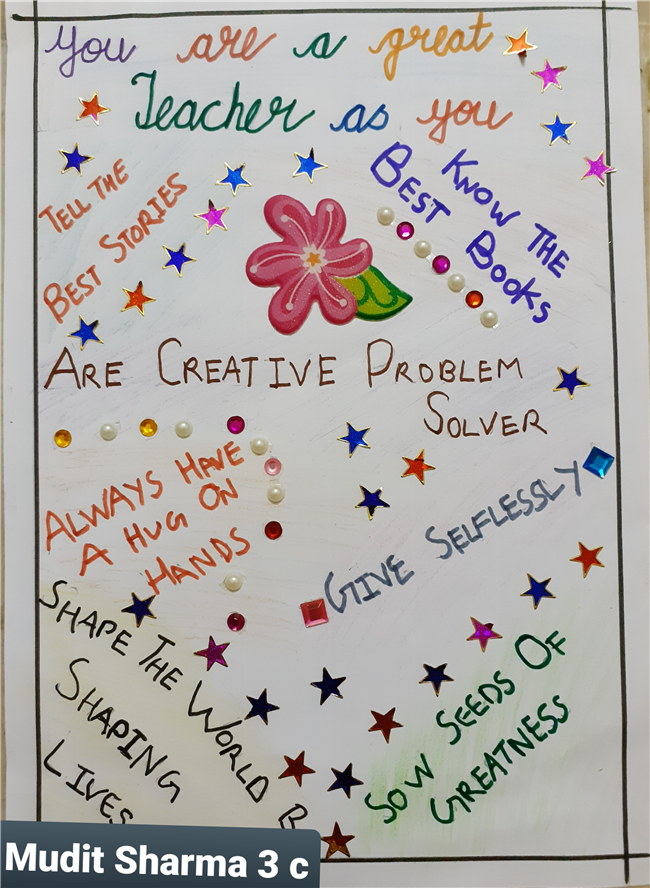 you are a great
Teacher as you
TELL THE
BEST STORIES
KNOW THE
BEST BOOKS
ARE CREATIVE PROBLEM
SOLVER
ALWAYS HAVE
A HUG ON
HANDS
GIVE SELFLESSLY
SHAPE THE WORLD B
SHAPING
LIVES
SOW SEEDS OF
GREATNESS
Mudit Sharma 3 c